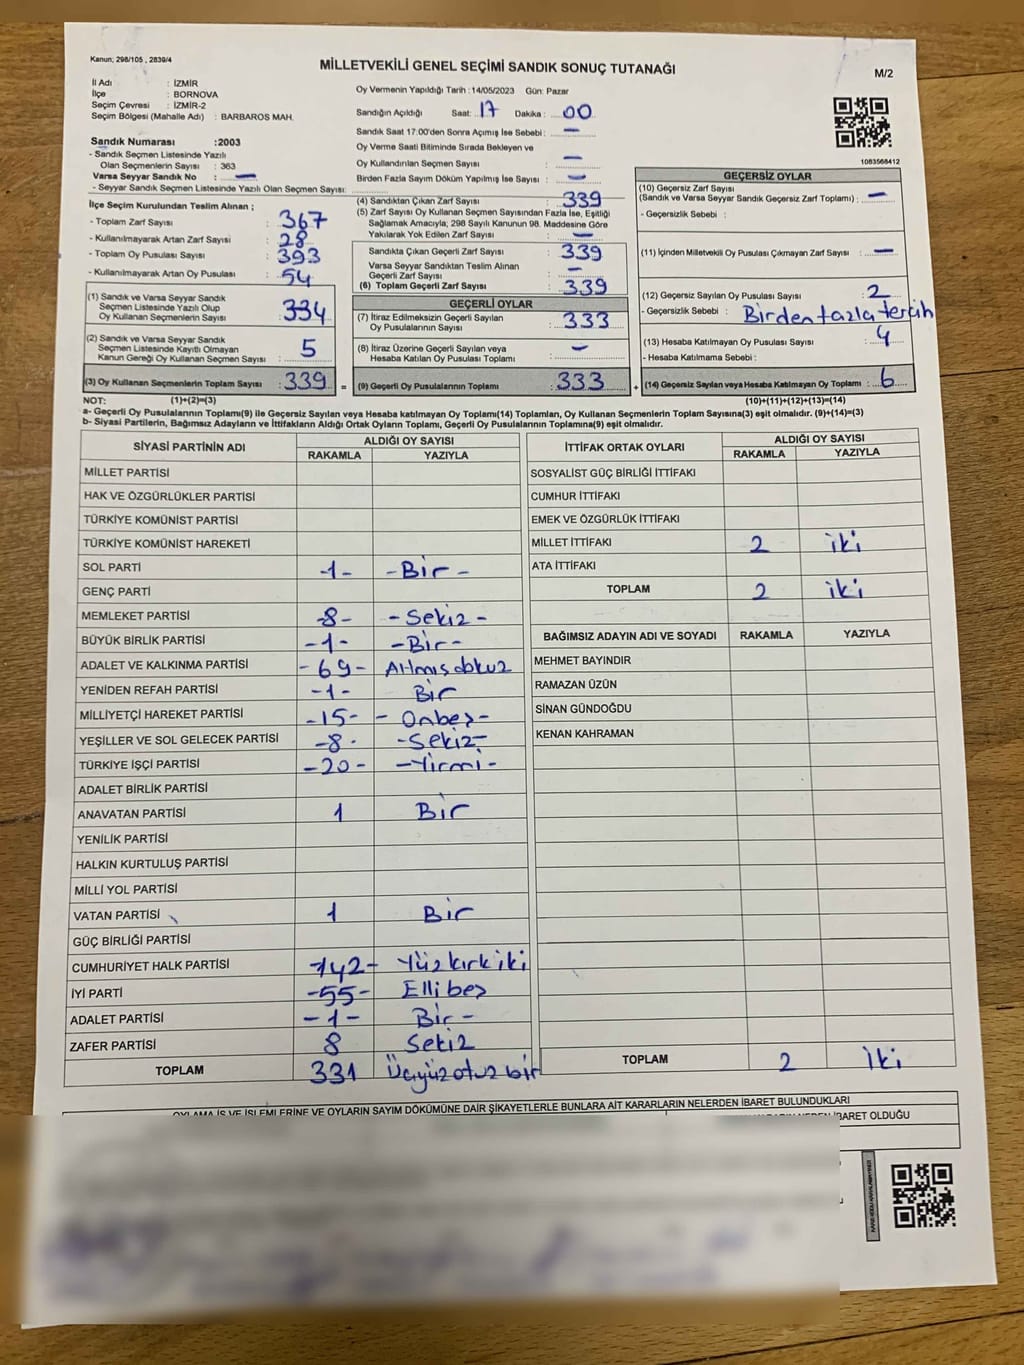 Kanun; 298/105 , 2839/4
MİLLETVEKİLİ GENEL SEÇİMİ SANDIK SONUÇ TUTANAĞI
M/2
İl Adı : İZMİR
İlçe : BORNOVA
Seçim Çevresi : İZMİR-2
Seçim Bölgesi (Mahalle Adı) : BARBAROS MAH.
Sandık Numarası :2003
- Sandık Seçmen Listesinde Yazılı
Olan Seçmenlerin Sayısı : 363
Varsa Seyyar Sandık No : —
- Seyyar Sandık Seçmen Listesinde Yazılı Olan Seçmen Sayısı:
Oy Vermenin Yapıldığı Tarih :14/05/2023 Gün: Pazar
Sandığın Açıldığı Saat: 17 Dakika : 00
Sandık Saat 17:00'den Sonra Açımış İse Sebebi : —
Oy Verme Saati Bitiminde Sırada Bekleyen ve
Oy Kullandırılan Seçmen Sayısı : —
Birden Fazla Sayım Döküm Yapılmış İse Sayısı : —
1083568412
İlçe Seçim Kurulundan Teslim Alınan ;
- Toplam Zarf Sayısı : 367
- Kullanılmayarak Artan Zarf Sayısı : 28
- Toplam Oy Pusulası Sayısı : 393
- Kullanılmayarak Artan Oy Pusulası : 54
(1) Sandık ve Varsa Seyyar Sandık
Seçmen Listesinde Yazılı Olup
Oy Kullanan Seçmenlerin Sayısı : 334
(2) Sandık ve Varsa Seyyar Sandık
Seçmen Listesinde Kayıtlı Olmayan
Kanun Gereği Oy Kullanan Seçmen Sayısı : 5
(3) Oy Kullanan Seçmenlerin Toplam Sayısı : 339 =
(4) Sandıktan Çıkan Zarf Sayısı : 339
(5) Zarf Sayısı Oy Kullanan Seçmen Sayısından Fazla İse, Eşitliği
Sağlamak Amacıyla, 298 Sayılı Kanunun 98. Maddesine Göre
Yakılarak Yok Edilen Zarf Sayısı : —
Sandıkta Çıkan Geçerli Zarf Sayısı : 339
Varsa Seyyar Sandıktan Teslim Alınan
Geçerli Zarf Sayısı : —
(6) Toplam Geçerli Zarf Sayısı : 339
GEÇERLİ OYLAR
(7) İtiraz Edilmeksizin Geçerli Sayılan
Oy Pusulalarının Sayısı : 333
(8) İtiraz Üzerine Geçerli Sayılan veya
Hesaba Katılan Oy Pusulası Toplamı : —
(9) Geçerli Oy Pusulalarının Toplamı : 333 +
GEÇERSİZ OYLAR
(10) Geçersiz Zarf Sayısı
(Sandık ve Varsa Seyyar Sandık Geçersiz Zarf Toplamı) : —
- Geçersizlik Sebebi :
(11) İçinden Milletvekili Oy Pusulası Çıkmayan Zarf Sayısı : —
(12) Geçersiz Sayılan Oy Pusulası Sayısı : 2
- Geçersizlik Sebebi : Birden fazla tercih
(13) Hesaba Katılmayan Oy Pusulası Sayısı : 4
- Hesaba Katılmama Sebebi :
(14) Geçersiz Sayılan veya Hesaba Katılmayan Oy Toplamı : 6
NOT: (1)+(2)=(3) (10)+(11)+(12)+(13)=(14)
a- Geçerli Oy Pusulalarının Toplamı(9) ile Geçersiz Sayılan veya Hesaba katılmayan Oy Toplamı(14) Toplamları, Oy Kullanan Seçmenlerin Toplam Sayısına(3) eşit olmalıdır. (9)+(14)=(3)
b- Siyasi Partilerin, Bağımsız Adayların ve İttifakların Aldığı Ortak Oyların Toplamı, Geçerli Oy Pusulalarının Toplamına(9) eşit olmalıdır.
SİYASİ PARTİNİN ADI ALDIĞI OY SAYISI
RAKAMLA YAZIYLA
MİLLET PARTİSİ
HAK VE ÖZGÜRLÜKLER PARTİSİ
TÜRKİYE KOMÜNİST PARTİSİ
TÜRKİYE KOMÜNİST HAREKETİ
SOL PARTİ -1- -Bir-
GENÇ PARTİ
MEMLEKET PARTİSİ -8- -Sekiz-
BÜYÜK BİRLİK PARTİSİ -1- -Bir-
ADALET VE KALKINMA PARTİSİ -69- Altmışdokuz
YENİDEN REFAH PARTİSİ -1- Bir
MİLLİYETÇİ HAREKET PARTİSİ -15- -Onbeş-
YEŞİLLER VE SOL GELECEK PARTİSİ -8- -Sekiz-
TÜRKİYE İŞÇİ PARTİSİ -20- -Yirmi-
ADALET BİRLİK PARTİSİ
ANAVATAN PARTİSİ 1 Bir
YENİLİK PARTİSİ
HALKIN KURTULUŞ PARTİSİ
MİLLİ YOL PARTİSİ
VATAN PARTİSİ 1 Bir
GÜÇ BİRLİĞİ PARTİSİ
CUMHURİYET HALK PARTİSİ -142- Yüzkırkiki
İYİ PARTİ -55- Ellibeş
ADALET PARTİSİ -1- Bir-
ZAFER PARTİSİ 8 Sekiz
TOPLAM 331 Üçyüzotuzbir
İTTİFAK ORTAK OYLARI ALDIĞI OY SAYISI
RAKAMLA YAZIYLA
SOSYALİST GÜÇ BİRLİĞİ İTTİFAKI
CUMHUR İTTİFAKI
EMEK VE ÖZGÜRLÜK İTTİFAKI
MİLLET İTTİFAKI 2 iki
ATA İTTİFAKI
TOPLAM 2 iki
BAĞIMSIZ ADAYIN ADI VE SOYADI RAKAMLA YAZIYLA
MEHMET BAYINDIR
RAMAZAN ÜZÜN
SİNAN GÜNDOĞDU
KENAN KAHRAMAN
TOPLAM 2 İki
OYLAMA İŞ VE İŞLEMLERİNE VE OYLARIN SAYIM DÖKÜMÜNE DAİR ŞİKAYETLERLE BUNLARA AİT KARARLARIN NELERDEN İBARET BULUNDUKLARI
NEDEN İBARET OLDUĞU